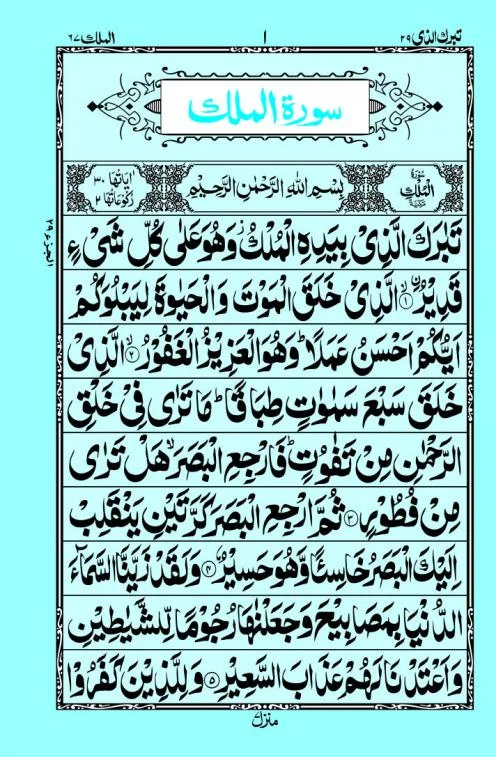 تبٰرك الذی ۲۹ ١ الملك ۶۷
سورة الملك
سُوْرَةُ الْمُلْكِ مَكِّيَّةٌ بِسْمِ اللهِ الرَّحْمٰنِ الرَّحِيْمِ اٰيَاتُهَا ۳۰ رُكُوْعَاتُهَا ۲
تَبٰرَكَ الَّذِیْ بِيَدِهِ الْمُلْكُ ۫ وَهُوَ عَلٰی كُلِّ شَیْءٍ
قَدِيْرُ ۙ﴿۱﴾ ۨالَّذِیْ خَلَقَ الْمَوْتَ وَ الْحَيٰوةَ لِيَبْلُوَكُمْ
اَيُّكُمْ اَحْسَنُ عَمَلًا ؕ وَهُوَ الْعَزِيْزُ الْغَفُوْرُ ۙ﴿۲﴾ الَّذِیْ
خَلَقَ سَبْعَ سَمٰوٰتٍ طِبَاقًا ؕ مَا تَرٰی فِیْ خَلْقِ
الرَّحْمٰنِ مِنْ تَفٰوُتٍ ؕ فَارْجِعِ الْبَصَرَ ۙ هَلْ تَرٰی
مِنْ فُطُوْرٍ ﴿۳﴾ ثُمَّ ارْجِعِ الْبَصَرَ كَرَّتَيْنِ يَنْقَلِبْ
اِلَيْكَ الْبَصَرُ خَاسِئًا وَّهُوَ حَسِيْرٌ ﴿۴﴾ وَلَقَدْ زَيَّنَّا السَّمَآءَ
الدُّنْيَا بِمَصَابِيْحَ وَجَعَلْنٰهَا رُجُوْمًا لِّلشَّيٰطِيْنِ
وَاَعْتَدْنَا لَهُمْ عَذَابَ السَّعِيْرِ ﴿۵﴾ وَ لِلَّذِيْنَ كَفَرُوْا
الجزء ۲۹
منزل